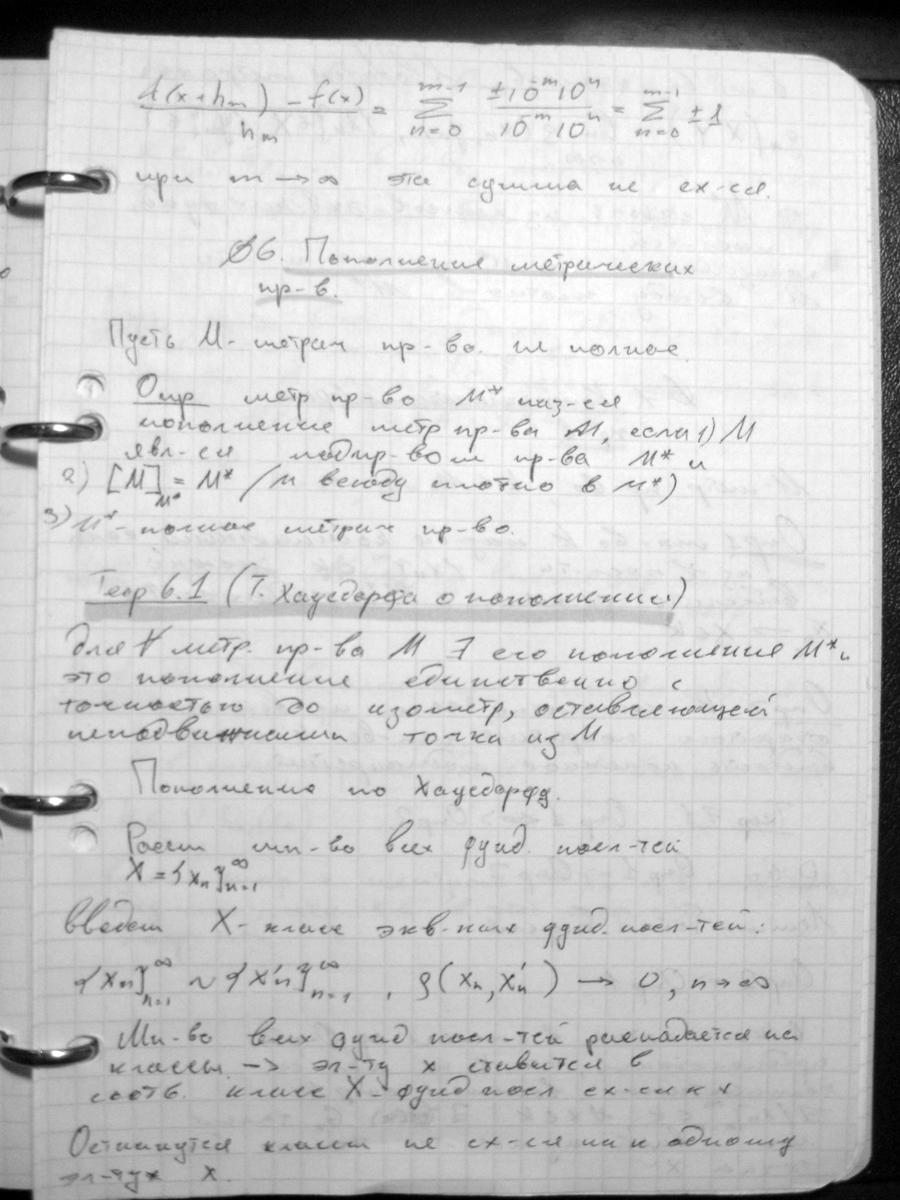 f(x+hₘ) - f(x) / hₘ = Σ_{n=0}^{m-1} ±10^m 10^n / 10^m 10^n = Σ_{n=0}^{m-1} ±1
при m → ∞ эта сумма не сх-ся.
§6. Пополнение метрических
пр-в.
Пусть M - метрич пр-во. не полное.
Опр метр пр-во M* наз-ся
пополнение метр пр-ва M, если 1) M
явл-ся подпр-вом пр-ва M* и
2) [M]_{M*} = M* (M всюду плотно в M*)
3) M* - полное метрич пр-во.
Теор 6.1 (Т. Хаусдорфа о пополнении)
Для ∀ метр. пр-ва M ∃ его пополнение M* и
это пополнение единственно с
точностью до изометр, оставляющей
неподвижными точки из M
Пополнение по Хаусдорфу.
Рассм мн-во всех фунд. посл-тей
X = {xₙ}_{n=1}^∞
Введем X - класс экв-ных фунд. посл-тей:
{xₙ}_{n=1}^∞ ~ {x'ₙ}_{n=1}^∞, ρ(xₙ, x'ₙ) → 0, n→∞
Мн-во всех фунд посл-тей распадается на
классы → эл-ту x ставится в
соотв. класс X - фунд посл сх-ся к x
Останутся классы не сх-ся ни к одному
эл-ту x.